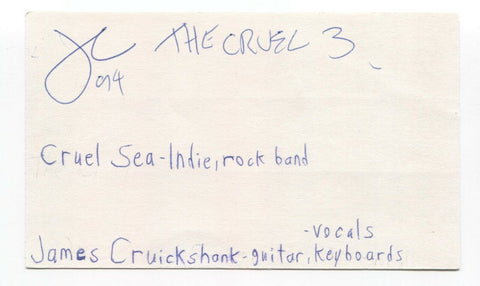 JC THE CRUEL 3
094
Cruel Sea-Indie, rock band
-vocals
James Cruickshank-guitar, keyboards